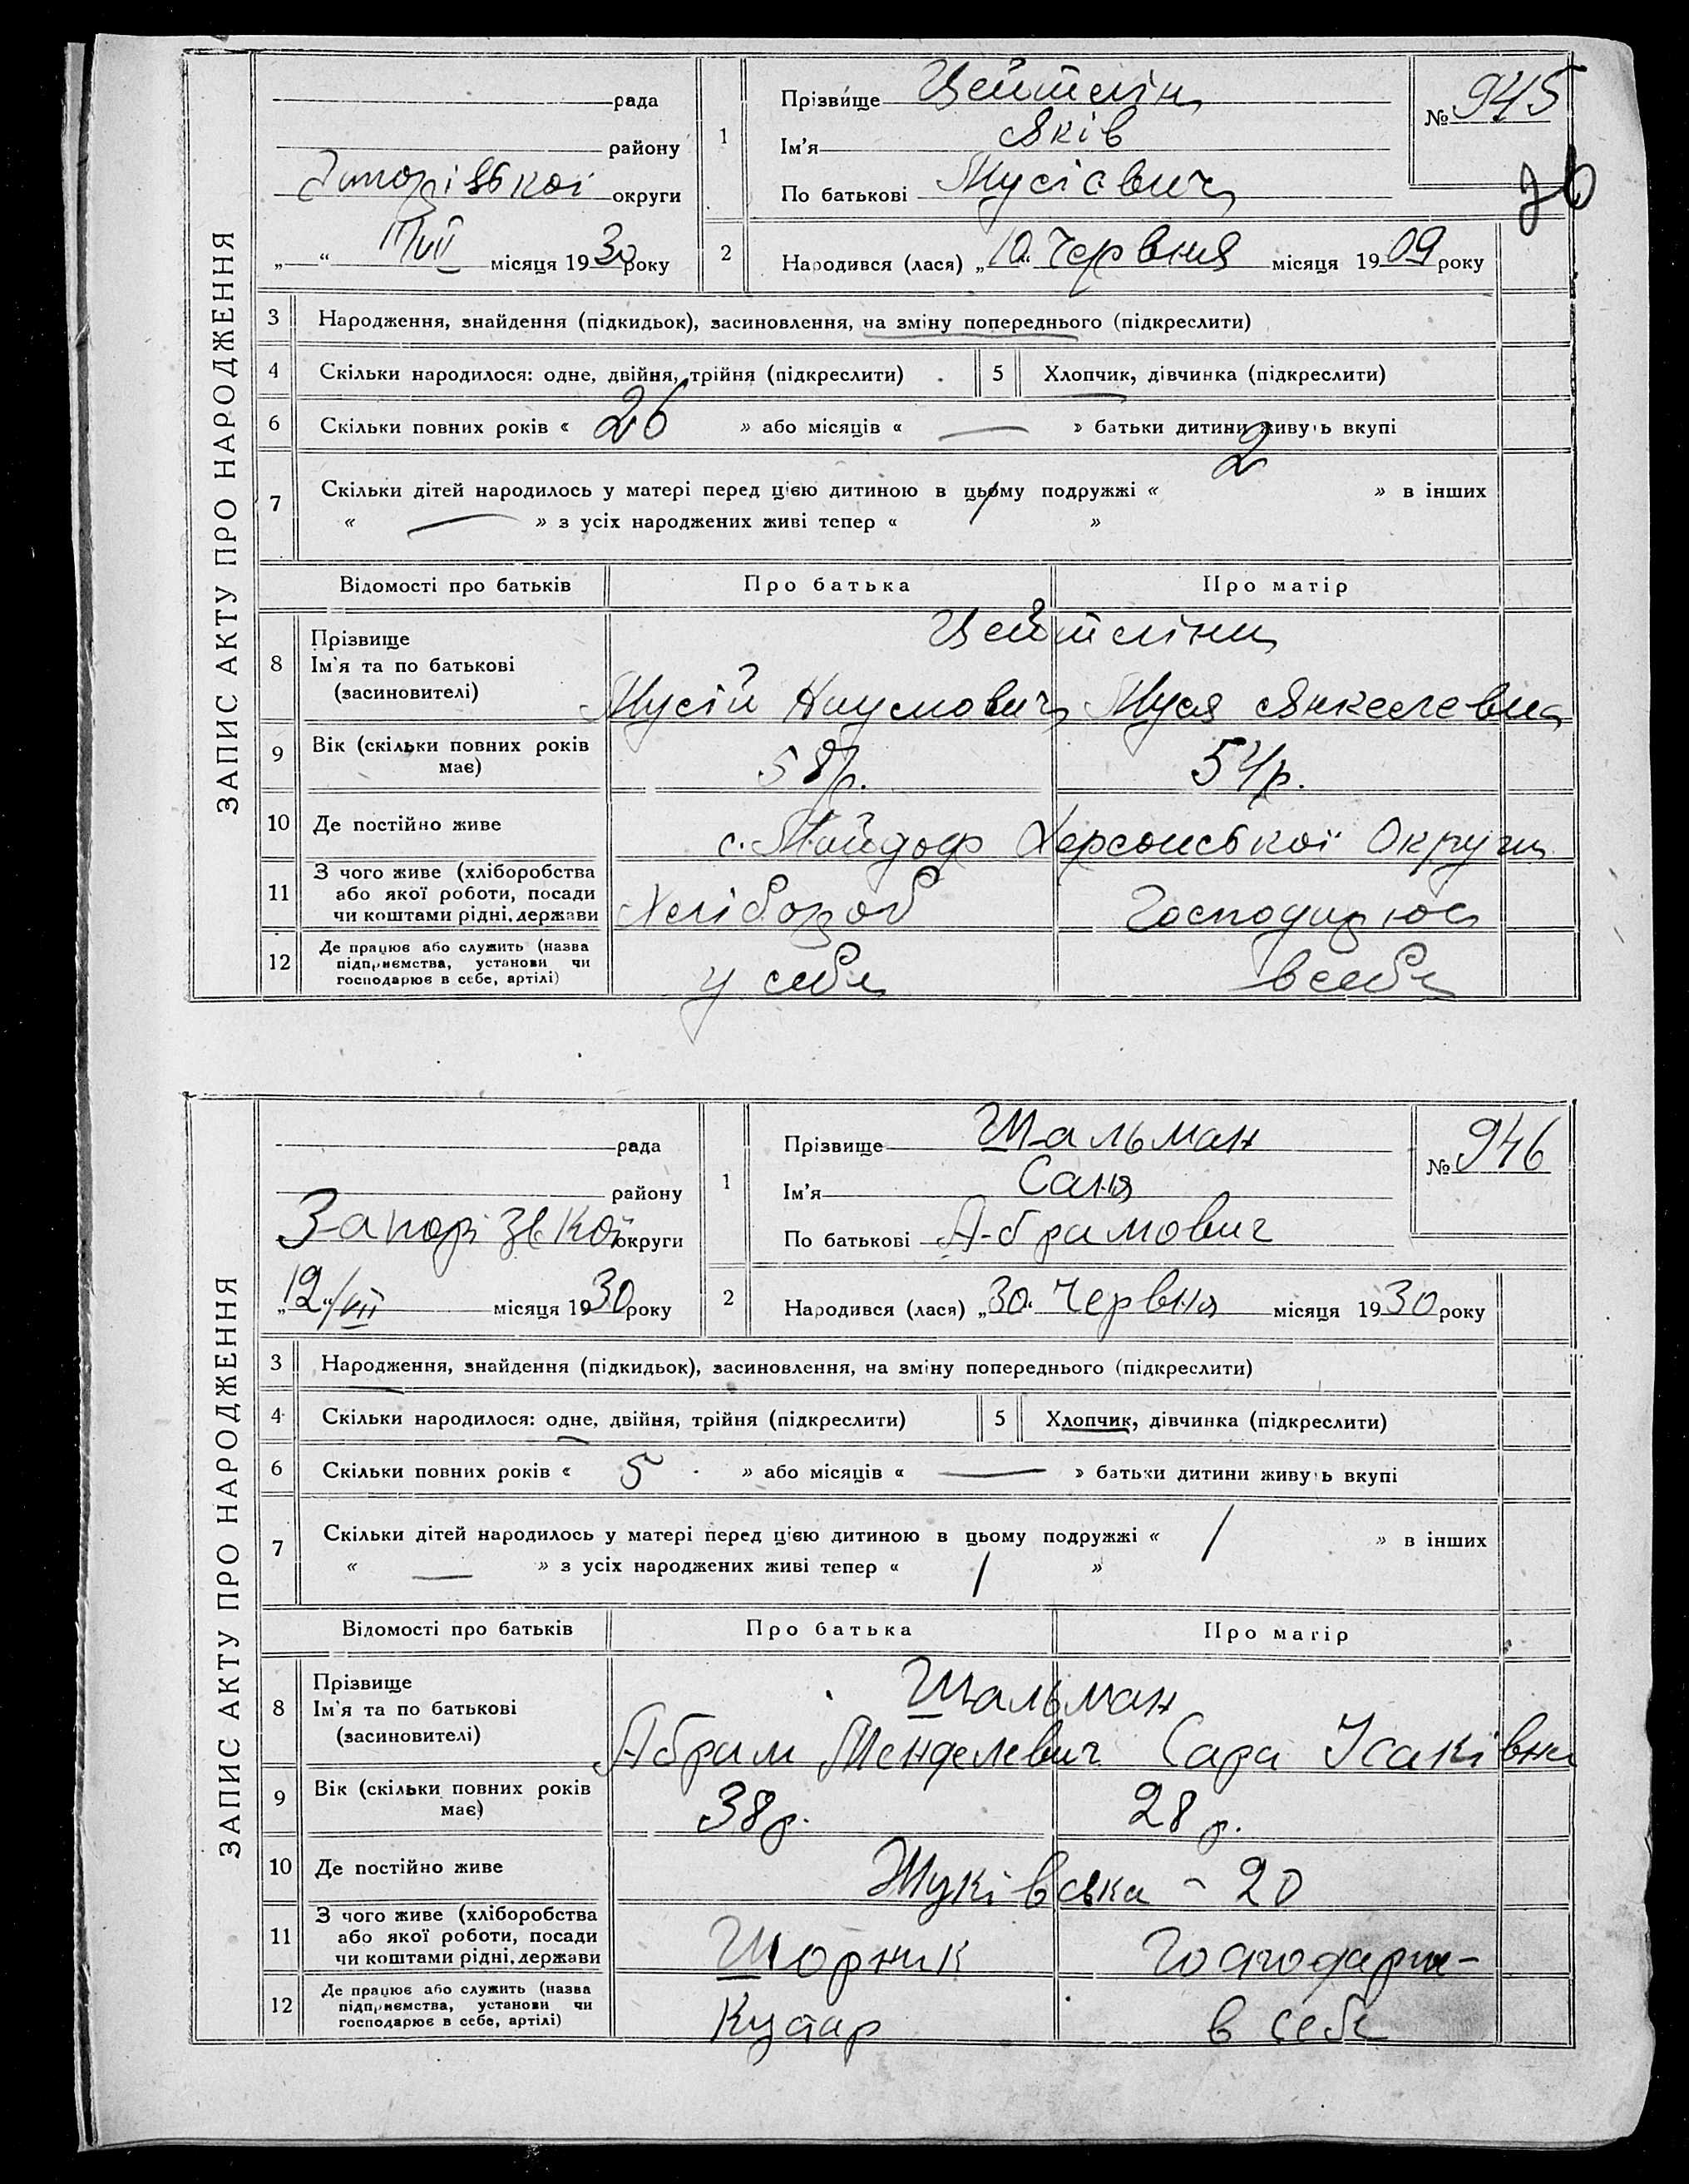 ЗАПИС АКТУ ПРО НАРОДЖЕННЯ
рада
району
округи
" " місяця 1930 року
1
Прізвище Цейтлін
Ім'я Яків
По батькові Мусієвич
№ 945
2
Народився (лася) „10" Червня місяця 1909 року
3 Народження, знайдення (підкидьок), засиновлення, на зміну попереднього (підкреслити)
4 Скільки народилося: одне, двійня, трійня (підкреслити) 5 Хлопчик, дівчинка (підкреслити)
6 Скільки повних років « 26 » або місяців « — » батьки дитини живуть вкупі
7 Скільки дітей народилось у матері перед цією дитиною в цьому подружжі « 2 » в інших
« — » з усіх народжених живі тепер « »
Відомості про батьків Про батька Про матір
8 Прізвище Ім'я та по батькові (засиновителі)
Цейтліни
Мусій Наумович Муся Янкелевна
9 Вік (скільки повних років має) 58 р. 54 р.
10 Де постійно живе с. Херсонської Округи
11 З чого живе (хліборобства або якої роботи, посади чи коштами рідні, держави Хлібороб
12 Де працює або служить (назва підприємства, установи чи господарює в себе, артілі) у себе в себе
ЗАПИС АКТУ ПРО НАРОДЖЕННЯ
рада
району
Запорізької округи
„12"/VII місяця 1930 року
1
Прізвище Шальман
Ім'я Саня
По батькові Абрамович
№ 946
2
Народився (лася) „30" Червня місяця 1930 року
3 Народження, знайдення (підкидьок), засиновлення, на зміну попереднього (підкреслити)
4 Скільки народилося: одне, двійня, трійня (підкреслити) 5 Хлопчик, дівчинка (підкреслити)
6 Скільки повних років « 5 » або місяців « — » батьки дитини живуть вкупі
7 Скільки дітей народилось у матері перед цією дитиною в цьому подружжі « 1 » в інших
« — » з усіх народжених живі тепер « 1 »
Відомості про батьків Про батька Про матір
8 Прізвище Ім'я та по батькові (засиновителі)
Шальман
Абрам Менделевич Сара Ісаківна
9 Вік (скільки повних років має) 38 р. 28 р.
10 Де постійно живе Жуківська - 20
11 З чого живе (хліборобства або якої роботи, посади чи коштами рідні, держави Шорник
12 Де працює або служить (назва підприємства, установи чи господарює в себе, артілі) Кустар в себе